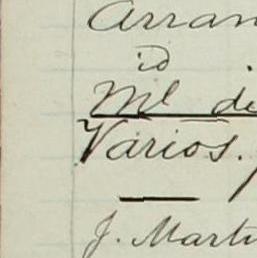 Arran
id
Ml de
Varios.
J. Marti